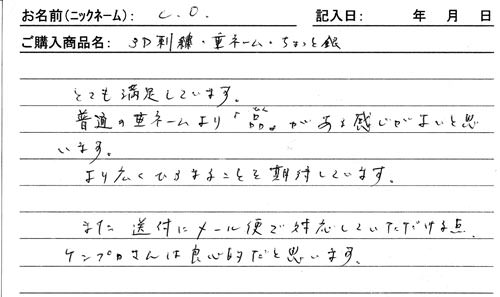 お名前(ニックネーム): C.O. 記入日: 年 月 日
ご購入商品名: 3D刺繍・重ネーム・ちょっと銀
とても満足しています。
普通の重ネームより『品』がある感じがよいと思
います。
より広くひろまることを期待しています。
また送付にメール便で対応していただける点、
ケンプロさんは良心的だと思います。